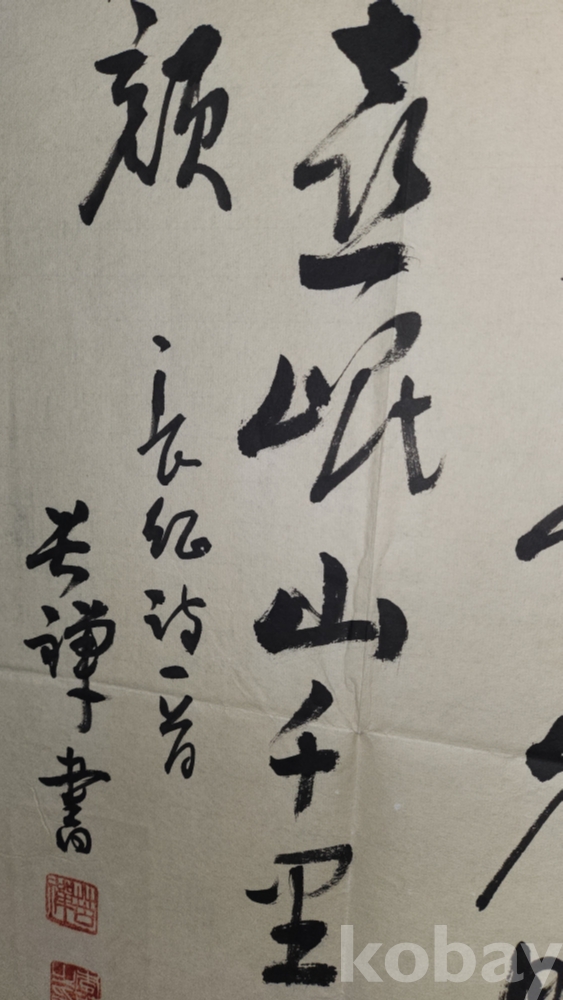 喜岷山千里
颜
长征诗一首
苦禪書
kobay